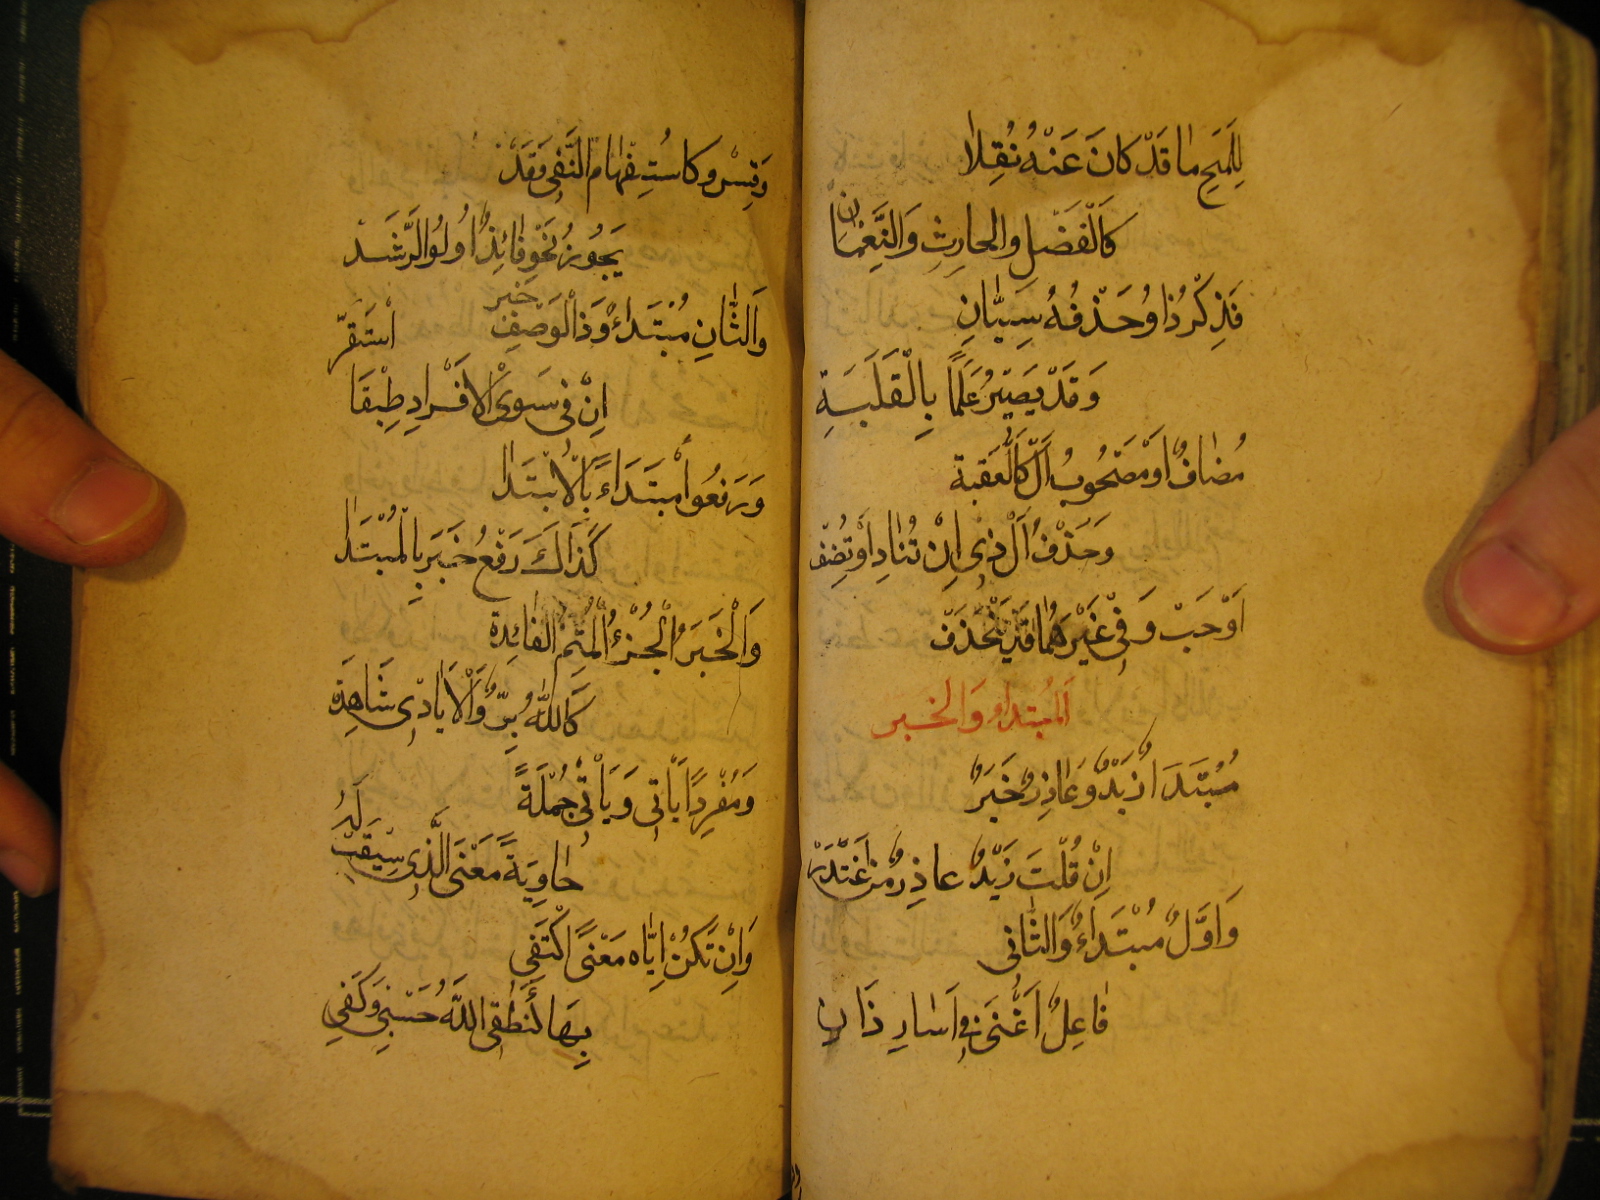 لِلَمْحِ مَا قَدْ كَانَ عَنْهُ نُقِلَا
كَالْفَضْلِ وَالْحَارِثِ وَالنُّعْمَانِ
فَذِكْرُ ذَا وَحَذْفُهُ سِيَّانِ
وَقَدْ يَصِيْرُ عَلَمًا بِالْغَلَبَةِ
مُضَافٌ اَوْ مَصْحُوْبُ اَلْ كَالْعَقَبَة
وَحَذْفُ اَلْ ذِى اِنْ تُنَادِ اَوْ تُضِفْ
اَوْجِبْ وَفِىْ غَيْرِهِمَا قَدْ تَنْحَذِفْ
اَلْمُبْتَدَاءُ وَالْخَبَر
مُبْتَدَاٌ زَيْدٌ وَعَاذِرٌ خَبَرٌ
اِنْ قُلْتَ زَيْدٌ عَاذِرٌ مَنِ اعْتَذَرْ
وَاَوَّلٌ مُبْتَدَاءٌ وَالثَّانِى
فَاعِلٌ اَغْنَى فِى اَسَارٍ ذَانِ
وَقِسْ وَكَاسْتِفْهَامٍ النَّفْىُ وَقَدْ
يَجُوْزُ نَحْوُ فَائِزٌ اُولُو الرَّشَدْ
وَالثَّانِ مُبْتَدَاءٌ وَذَا الْوَصْفِ خَبَر اسْتَقَرّ
اِنْ فِى سِوَى الْاَفْرَادِ طِبْقًا
وَرَفَعُوا مُبْتَدَاءً بِالْاِبْتِدَا
كَذَاكَ رَفْعُ خَبَرٍ بِالْمُبْتَدَا
وَالْخَبَرُ الْجُزْءُ الْمُتِمُّ الْفَائِدَة
كَاللّٰهُ بَرٌّ وَالْاَيَادِى شَاهِدَة
وَمُفْرَدًا يَأْتِى وَيَأْتِى جُمْلَةً
حَاوِيَةً مَعْنَى الَّذِى سِيْقَتْ لَهُ
وَاِنْ تَكُنْ اِيَّاهُ مَعْنًى اكْتَفَى
بِهَا كَنُطْقِى اللّٰهُ حَسْبِى وَكَفَى